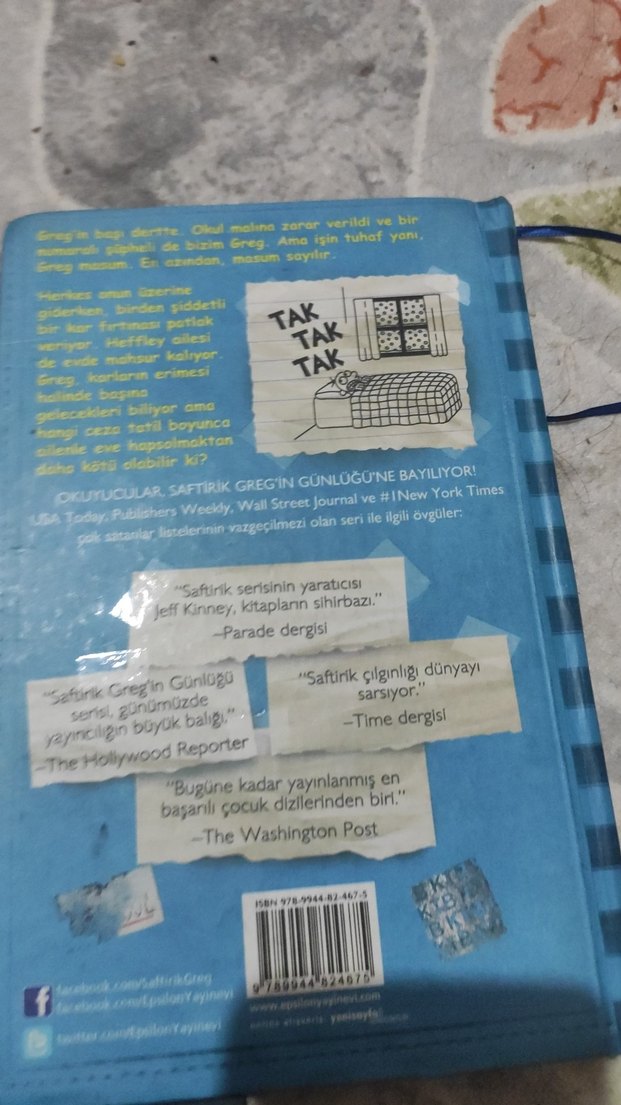 Greg'in başı dertte. Okul malına zarar verildi ve bir
numaralı şüpheli de bizim Greg. Ama işin tuhaf yanı,
Greg masum. En azından, masum sayılır.
Herkes onun üzerine
giderken, birden şiddetli
bir kar fırtınası patlak
veriyor. Heffley ailesi
de evde mahsur kalıyor.
Greg, karların erimesi
halinde başına
gelecekleri biliyor ama
hangi ceza tatil boyunca
ailenle eve hapsolmaktan
daha kötü olabilir ki?
TAK
TAK
TAK
OKUYUCULAR, SAFTİRİK GREG'İN GÜNLÜĞÜ'NE BAYILIYOR!
USA Today, Publishers Weekly, Wall Street Journal ve #1New York Times
çok satanlar listelerinin vazgeçilmezi olan seri ile ilgili övgüler:
"Saftirik serisinin yaratıcısı
Jeff Kinney, kitapların sihirbazı."
–Parade dergisi
"Saftirik Greg'in Günlüğü
serisi, günümüzde
yayıncılığın büyük balığı."
–The Hollywood Reporter
"Saftirik çılgınlığı dünyayı
sarsıyor."
–Time dergisi
"Bugüne kadar yayınlanmış en
başarılı çocuk dizilerinden biri."
–The Washington Post
ISBN 978-9944-82-467-5
9 789944 824675
www.epsilonyayinevi.com
facebook.com/SaftirikGreg
facebook.com/EpsilonYayinevi
twitter.com/EpsilonYayinevi